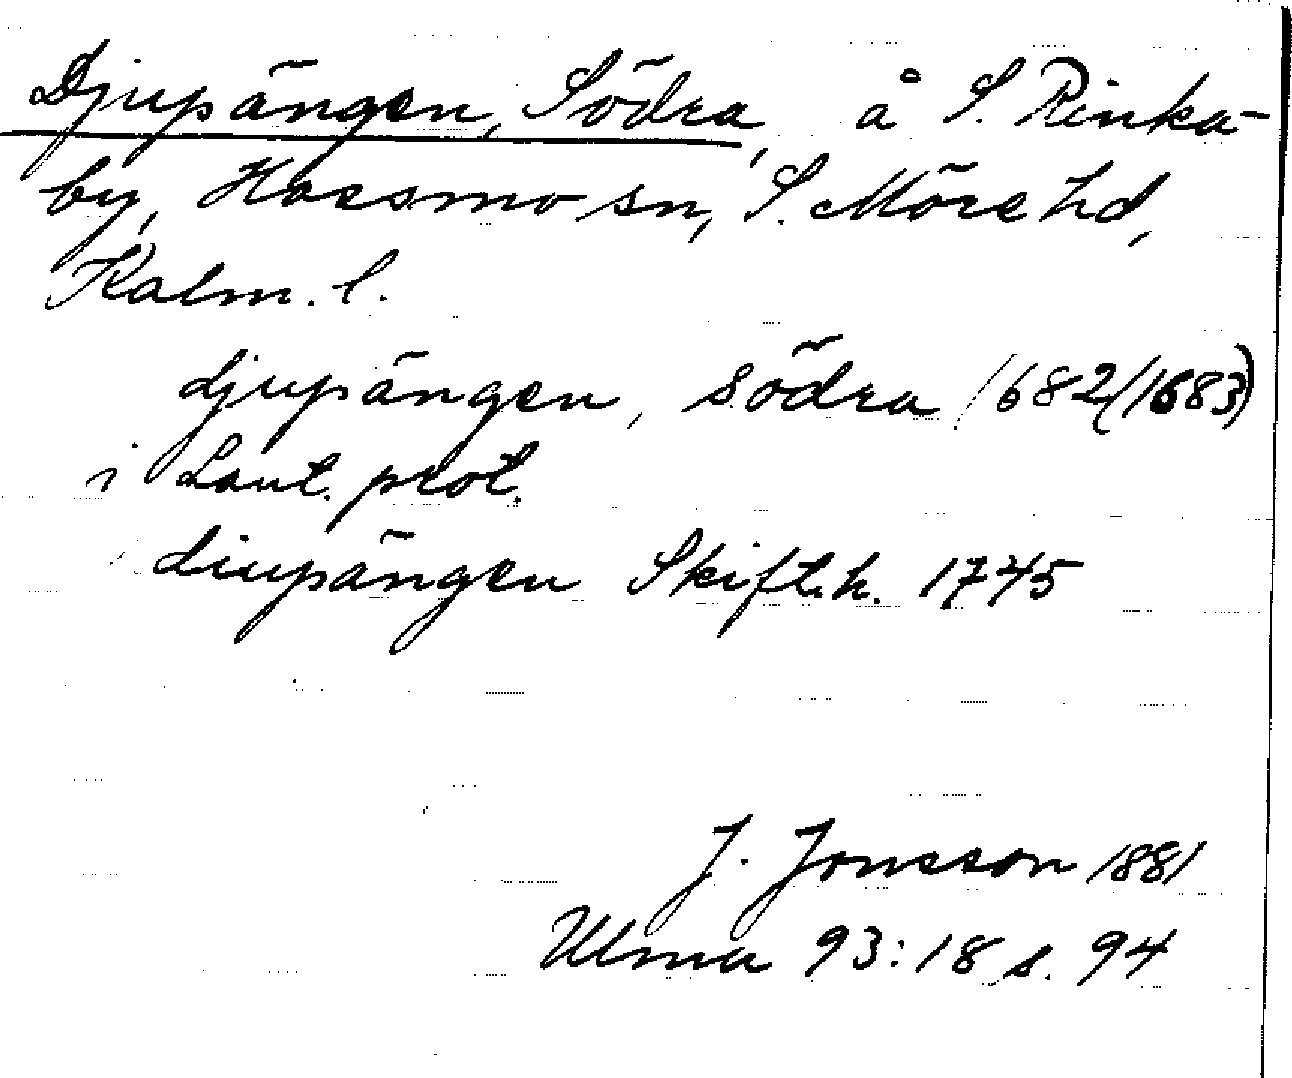 Djupängen, Södra, å S. Rinka-
by, Hossmo sn, S. Möre hd,
Kalm. l.
djupängen, södra 1682(1683)
i Lant. prot.
diupängen Skift.h. 1745
J. Jonsson 1881
Ulma 93:18 s. 94